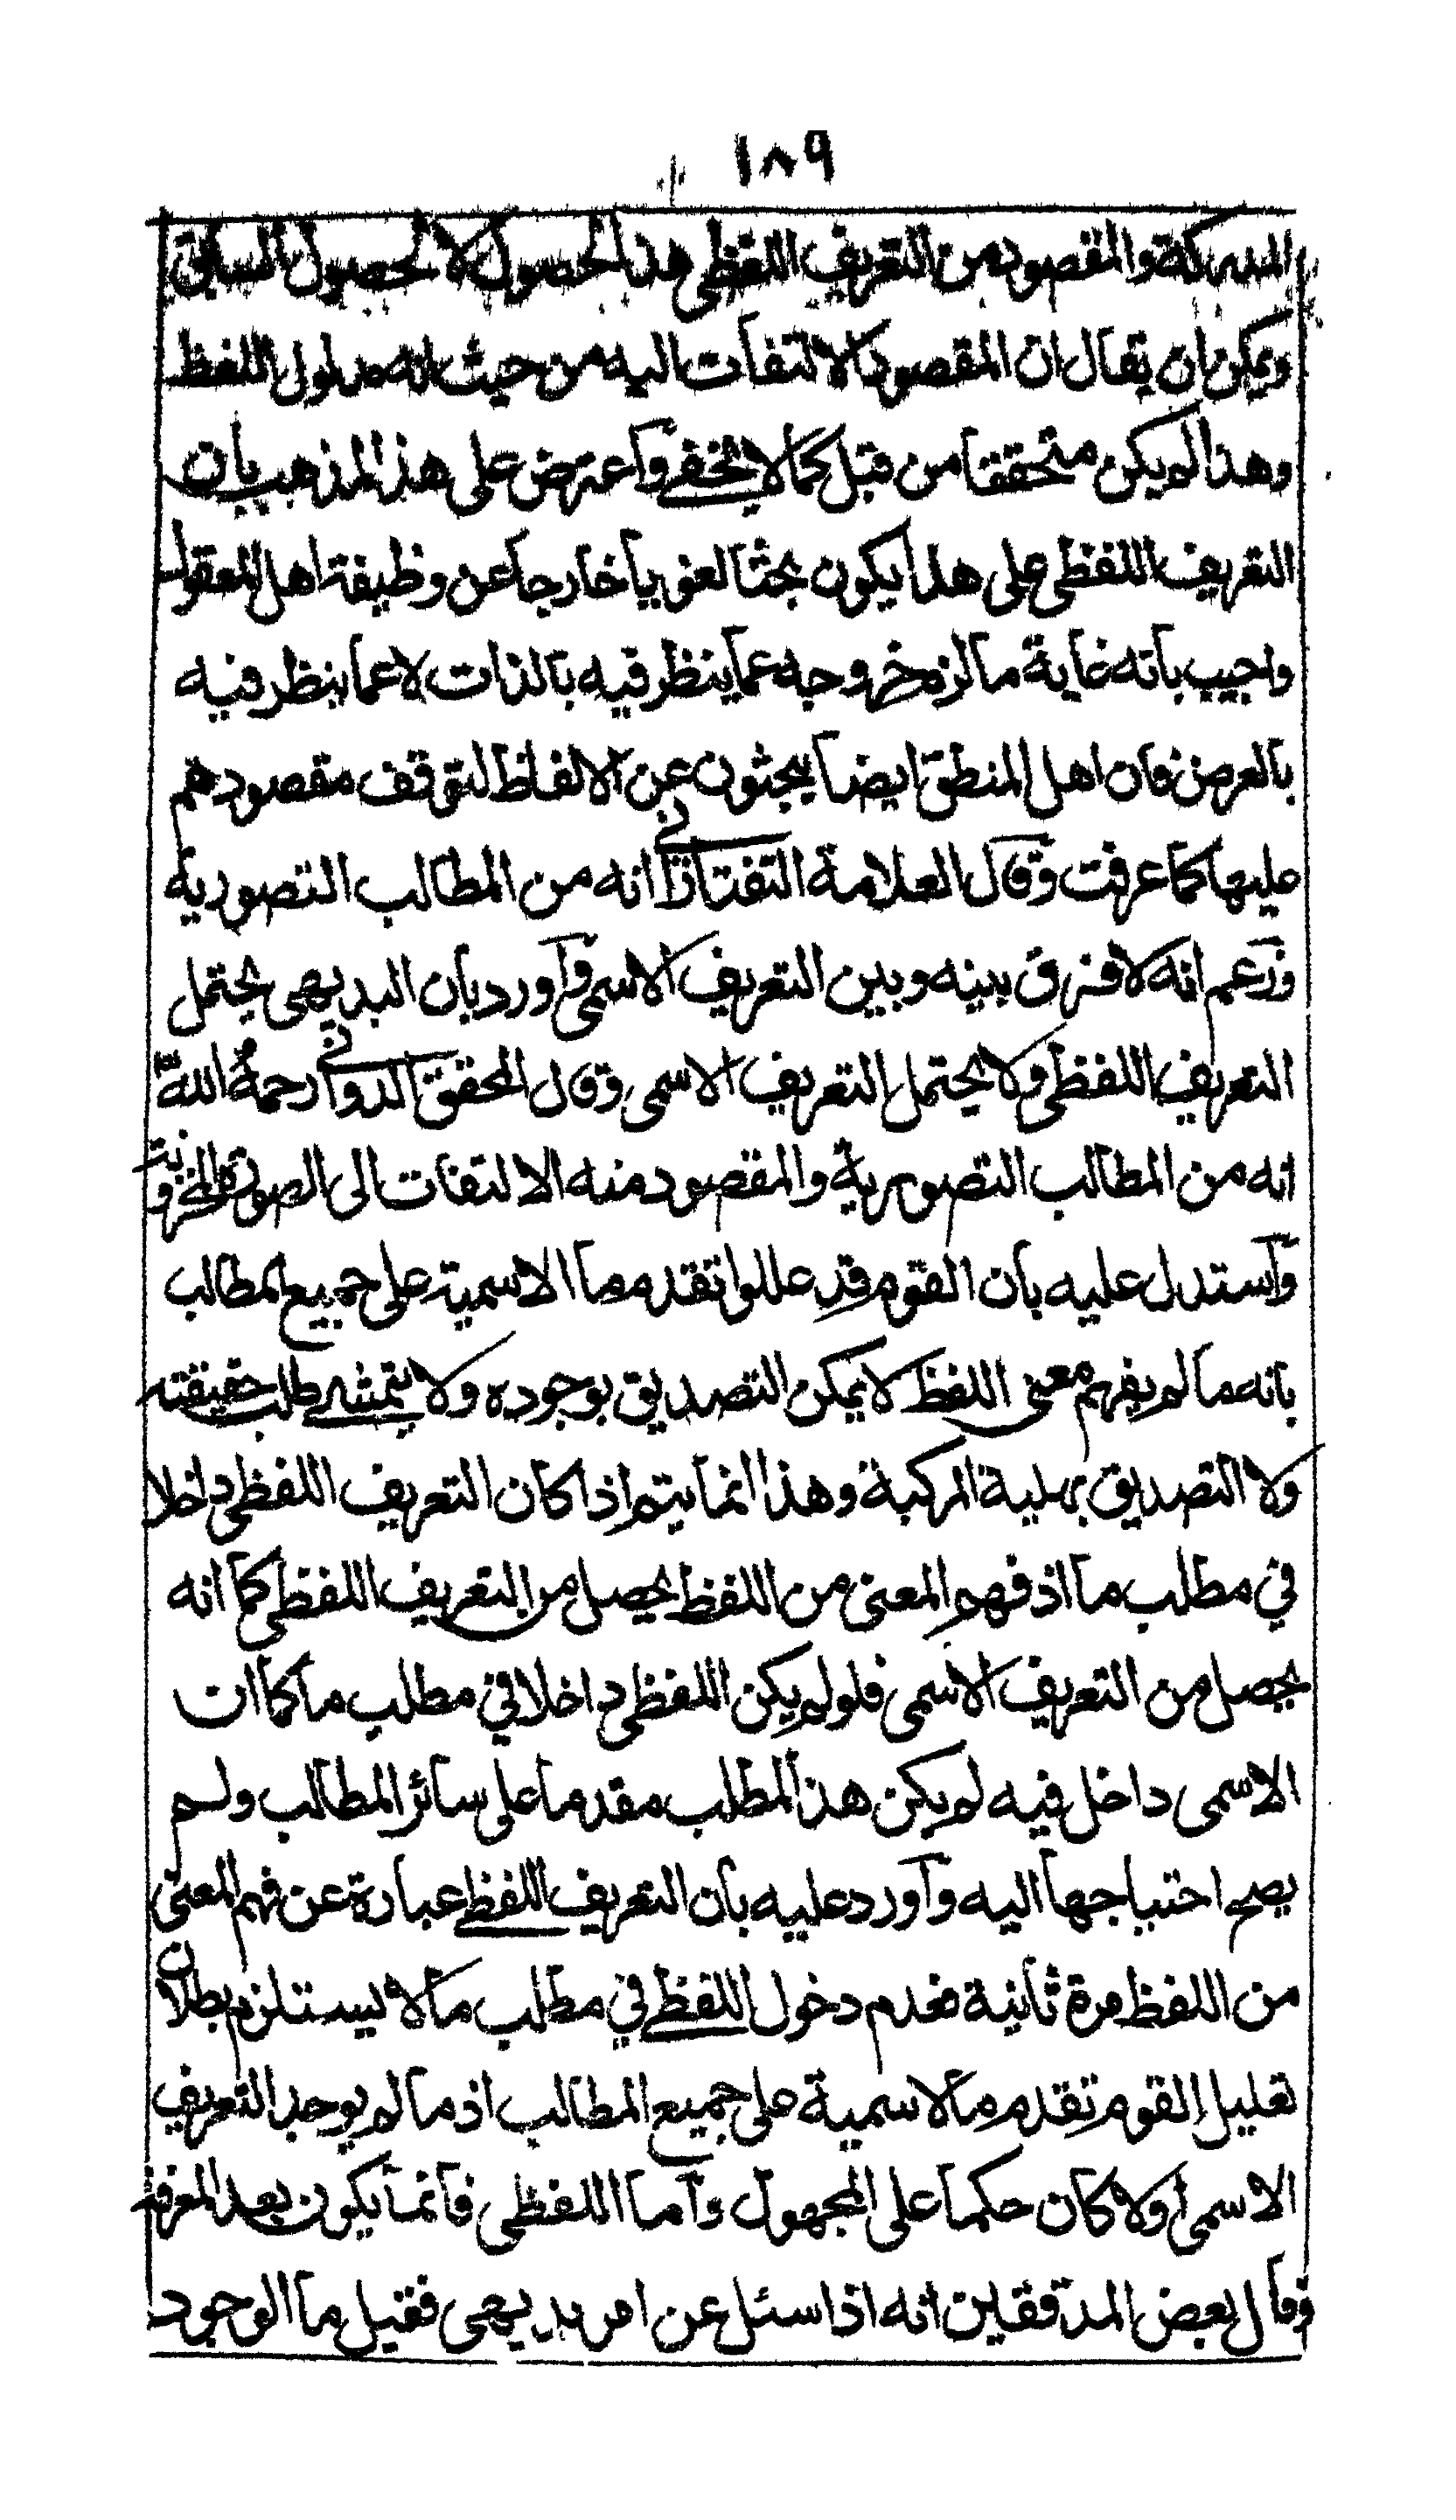 ١٨٩
المدركة والمقصود من التعريف اللفظي هذا الحصول لا الحصول السابق
ويمكن ان يقال ان المقصود الالتفات اليه من حيث انه مدلول اللفظ
وهذا لم يكن متحققا من قبل كما لا يخفى واعترض على هذا المذهب بان
التعريف اللفظي على هذا يكون بحثا لغويا خارجا عن وظيفة اهل المعقول
واجيب بانه غاية ما لزم خروجه عما ينظر فيه بالذات لا عما ينظر فيه
بالعرض فان اهل المنطق ايضا يبحثون عن الالفاظ لتوقف مقصودهم
عليها كما عرفت وقال العلامة التفتازاني انه من المطالب التصورية
وزعم انه لا فرق بينه وبين التعريف الاسمى واورد بان البديهى يحتمل
التعريف اللفظي ولا يحتمل التعريف الاسمى وقال المحقق الدواني رحمة الله
انه من المطالب التصورية والمقصود منه الالتفات الى الصورة المخزونة
واستدل عليه بان القوم قد عللوا تقدم ما الاسمية على جميع المطالب
بانه ما لم يفهم معنى اللفظ لا يمكن التصديق بوجوده ولا يتمشى طلب حقيقته
ولا التصديق بهلية المركبة وهذا انما يتم اذا كان التعريف اللفظي داخلا
في مطلب ما اذ فهم المعنى من اللفظ يحصل من التعريف اللفظي كما انه
يحصل من التعريف الاسمى فلو لم يكن اللفظي داخلا في مطلب ما كما ان
الاسمى داخل فيه لم يكن هذا المطلب مقدما على سائر المطالب ولم
يصح احتياجها اليه واورد عليه بان التعريف اللفظي عبارة عن فهم المعنى
من اللفظ مرة ثانية فعدم دخول اللفظي في مطلب ما لا يستلزم بطلان
تعليل القوم تقدم ما الاسمية على جميع المطالب اذ ما لم يوجد التعريف
الاسمى اولا كان حكما على المجهول واما اللفظي فانما يكون بعد المعرفة
وقال بعض المدققين انه اذا سئل عن امر بديهى فقيل ما الوجود